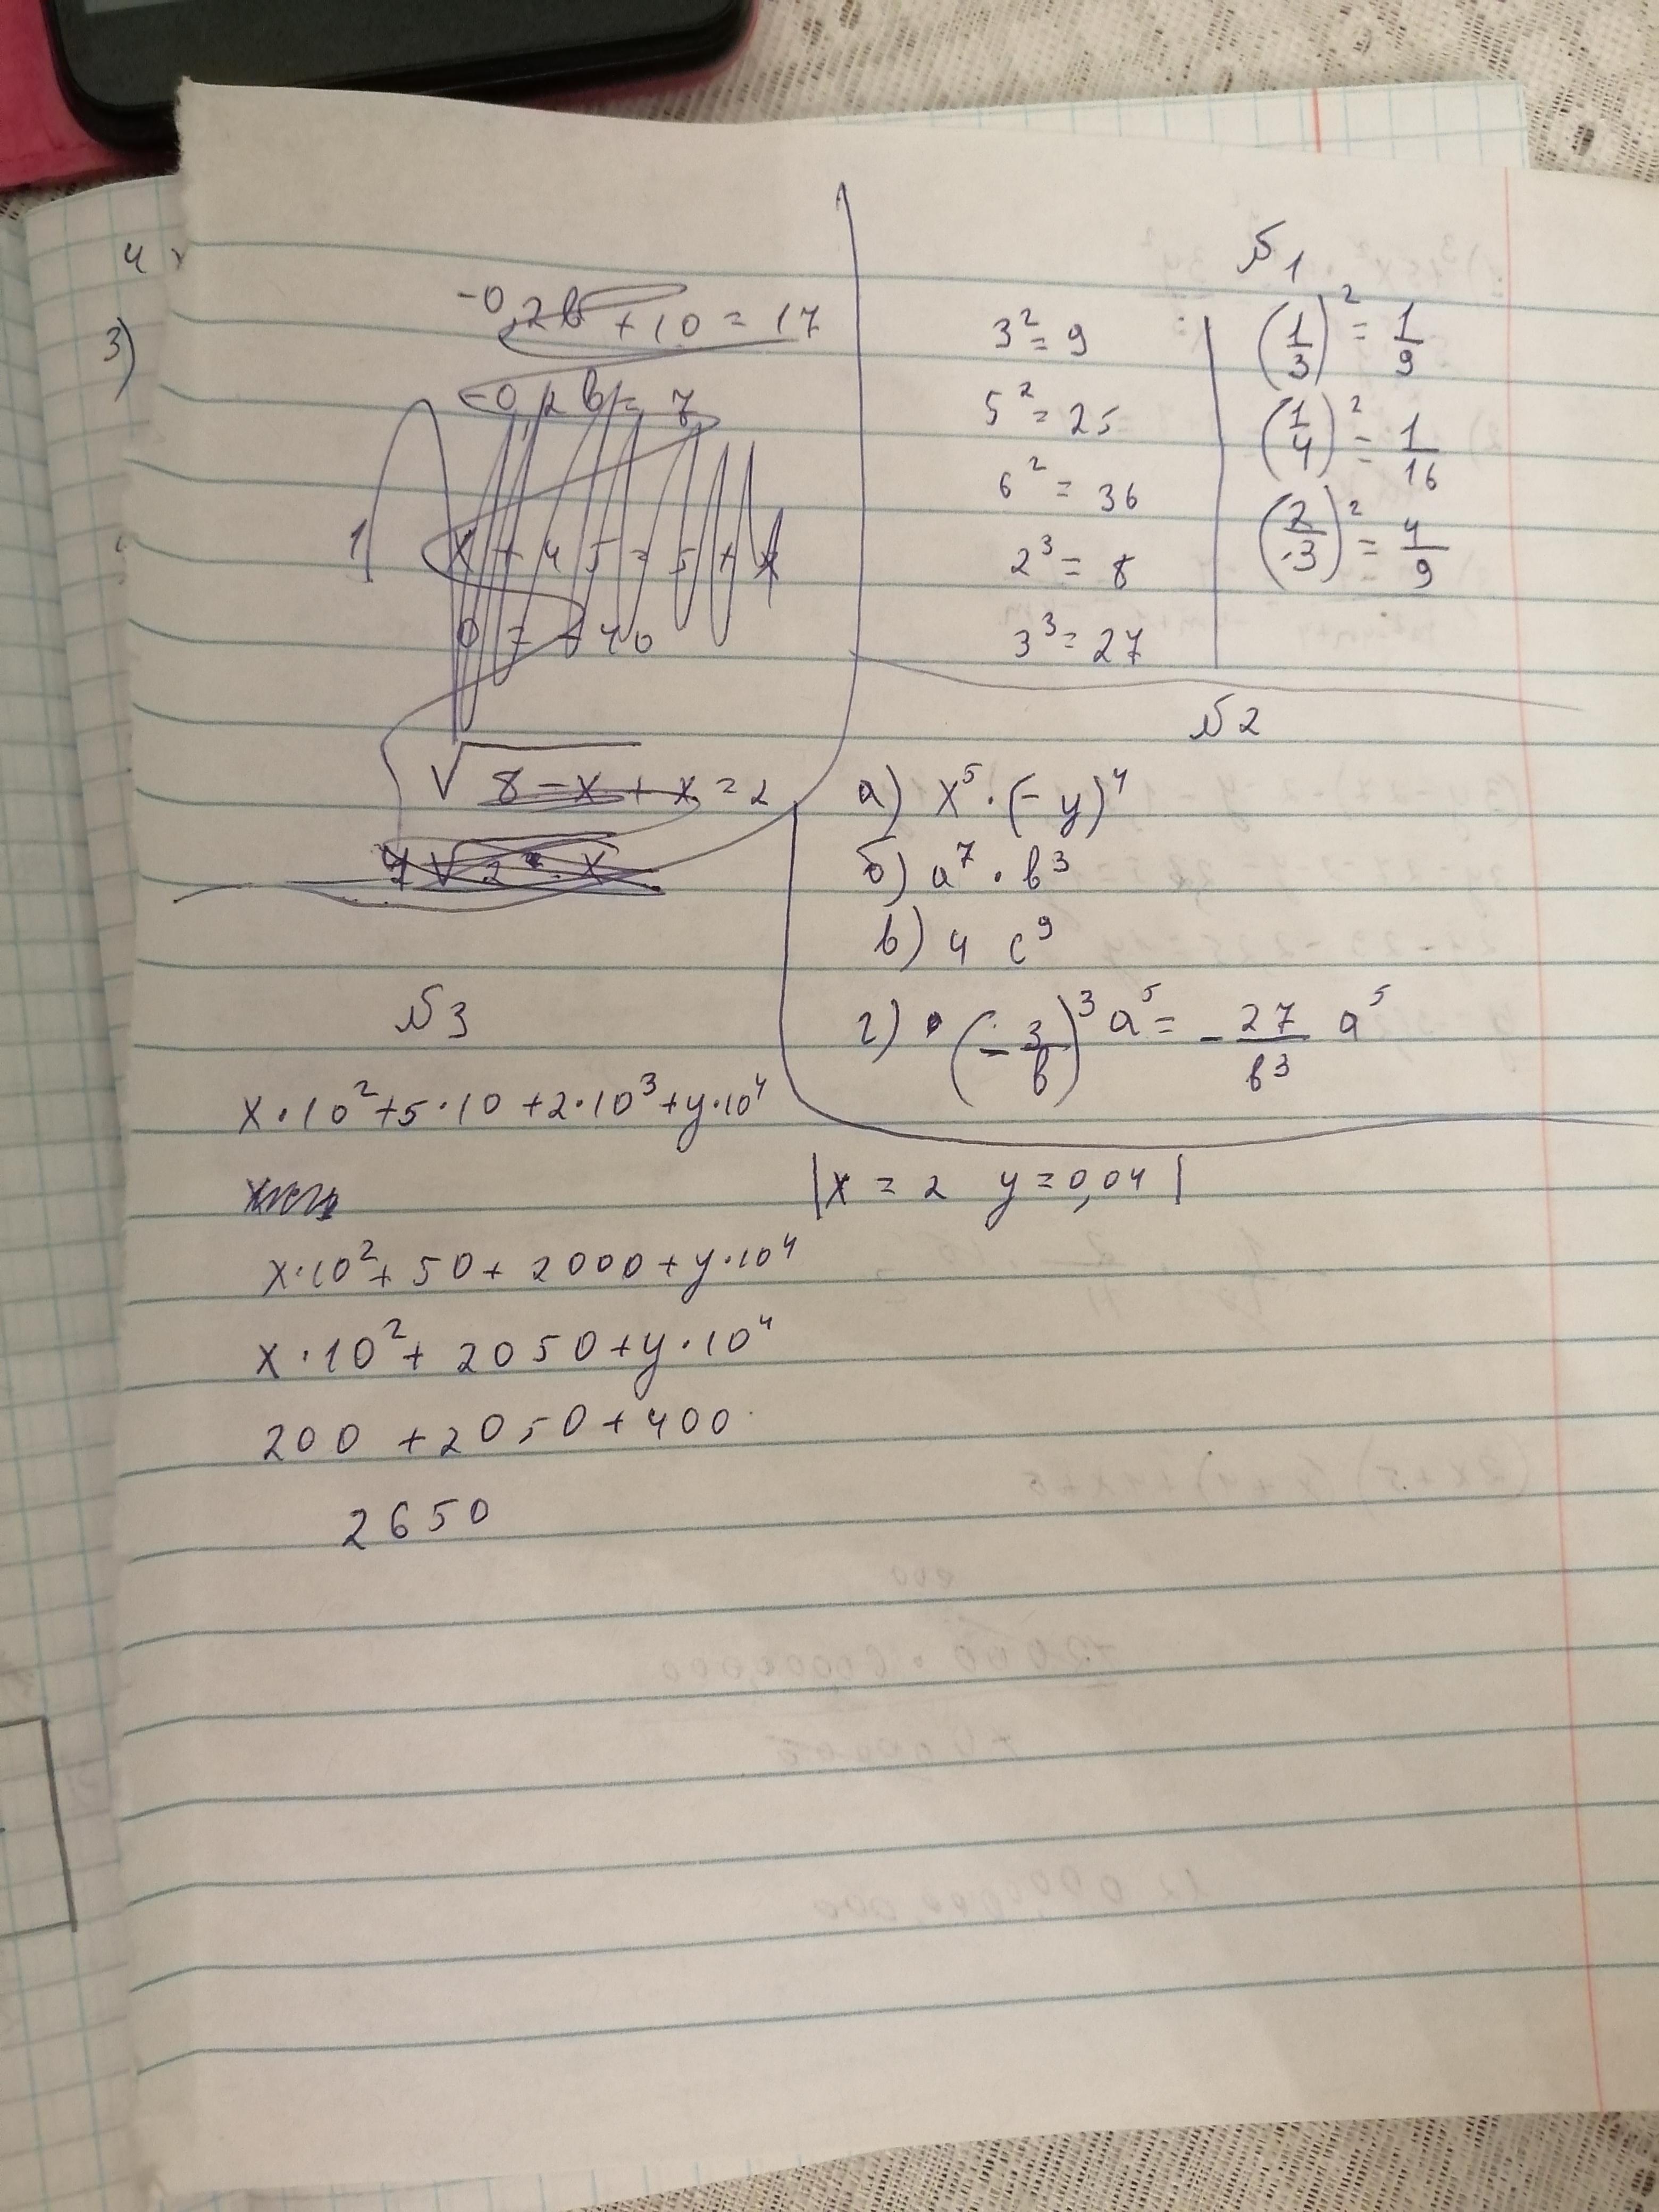 4
3)
-0,2b + 10 = 17
-0,2b = 7
x + 45 = 5 + x
0 = -40
√8-x + x = 2
№1
3² = 9
5² = 25
6² = 36
2³ = 8
3³ = 27
(1/3)² = 1/9
(1/4)² = 1/16
(2/3)² = 4/9
№2
а) x⁵·(-y)⁴
б) a⁷·b³
в) 4 c⁹
г) (-3/b)³ a⁵ = -27/b³ a⁵
№3
x·10²+5·10+2·10³+y·10⁴
|x = 2 y = 0,04|
x·10²+50+2000+y·10⁴
x·10²+2050+y·10⁴
200+2050+400
2650